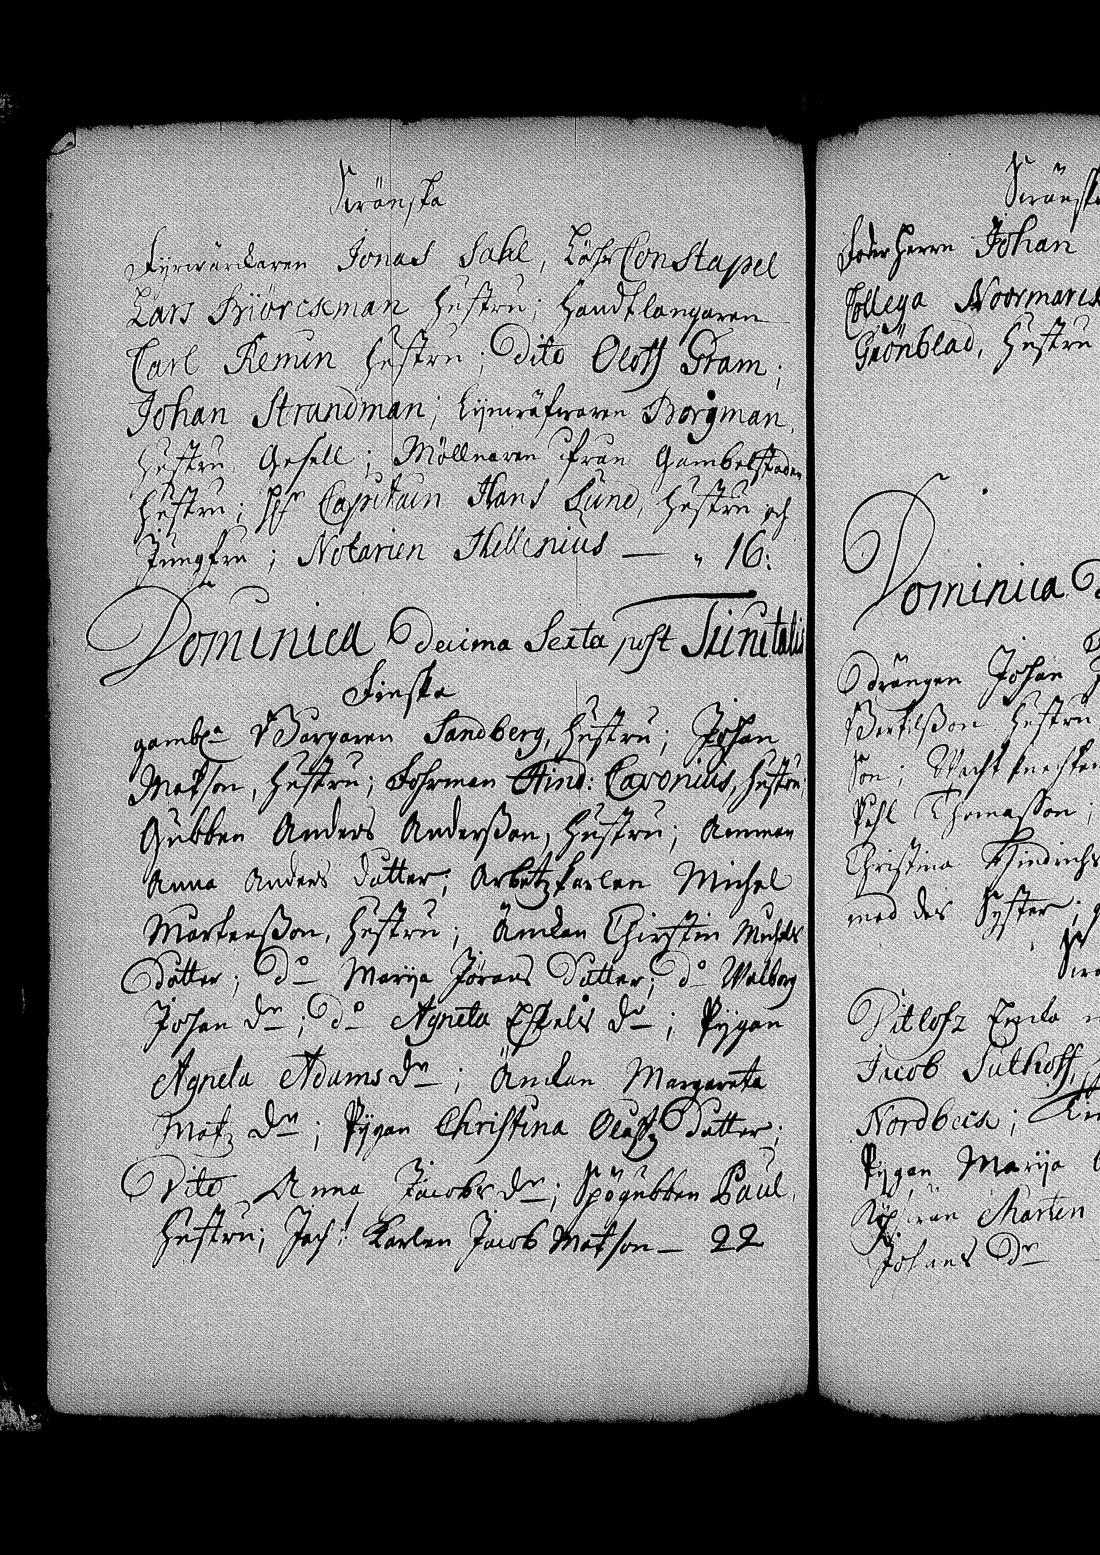 Swänska
Fyrwärckaren Jonas Sahl, Löhs Constapel
Lars Biörckman Hustru; Handtlangaren
Carl Remin Hustru; Dito Oloff Gram;
Johan Strandman; Borgman,
Hustru, Gesell; Möllnaren ifrån Gambelstaden
Hustru; Capitain Hans Lund, Hustru och
Jungfru; Notarien Hellenius — " 16:
Dominica Decima Sexta post Trinitatis
Finska
gambla Borgaren Sandberg, Hustru; Johan
Matson, Hustru; Fohrman Hind: Cavonius, Hustru;
Gubben Anders Anderßon, Hustru; Amman
Anna Anders datter; Arbetzkarlen Michel
Mortenßon, Hustru; Änckan Chirstin Michels
Datter; Do Marija Jörans Datter; do Walborg
Johan Dr; Do Agneta Eskels Dr; Pygan
Agneta Adams Dr; Änckan Margareta
Matz Dr; Pygan Christina Oluffz Datter;
Dito Anna Jacobs Dr; Spögubben Paul,
Hustru; Karlen Jacob Matson — 22
Swänsk
Herrn Johan
Collega Noormarck
Grönblad, Hustru
Dominica D
Drängen Johan
Bertilßon Hustru
Son; Wacht knechten
Pehl Thomasson;
Christina Hindrichs
med des Syster;
Swä
Ditlofz Encka
Jacob Suthoff,
Nordbeck;
Pygan Marija
Mårten
Johans Dr